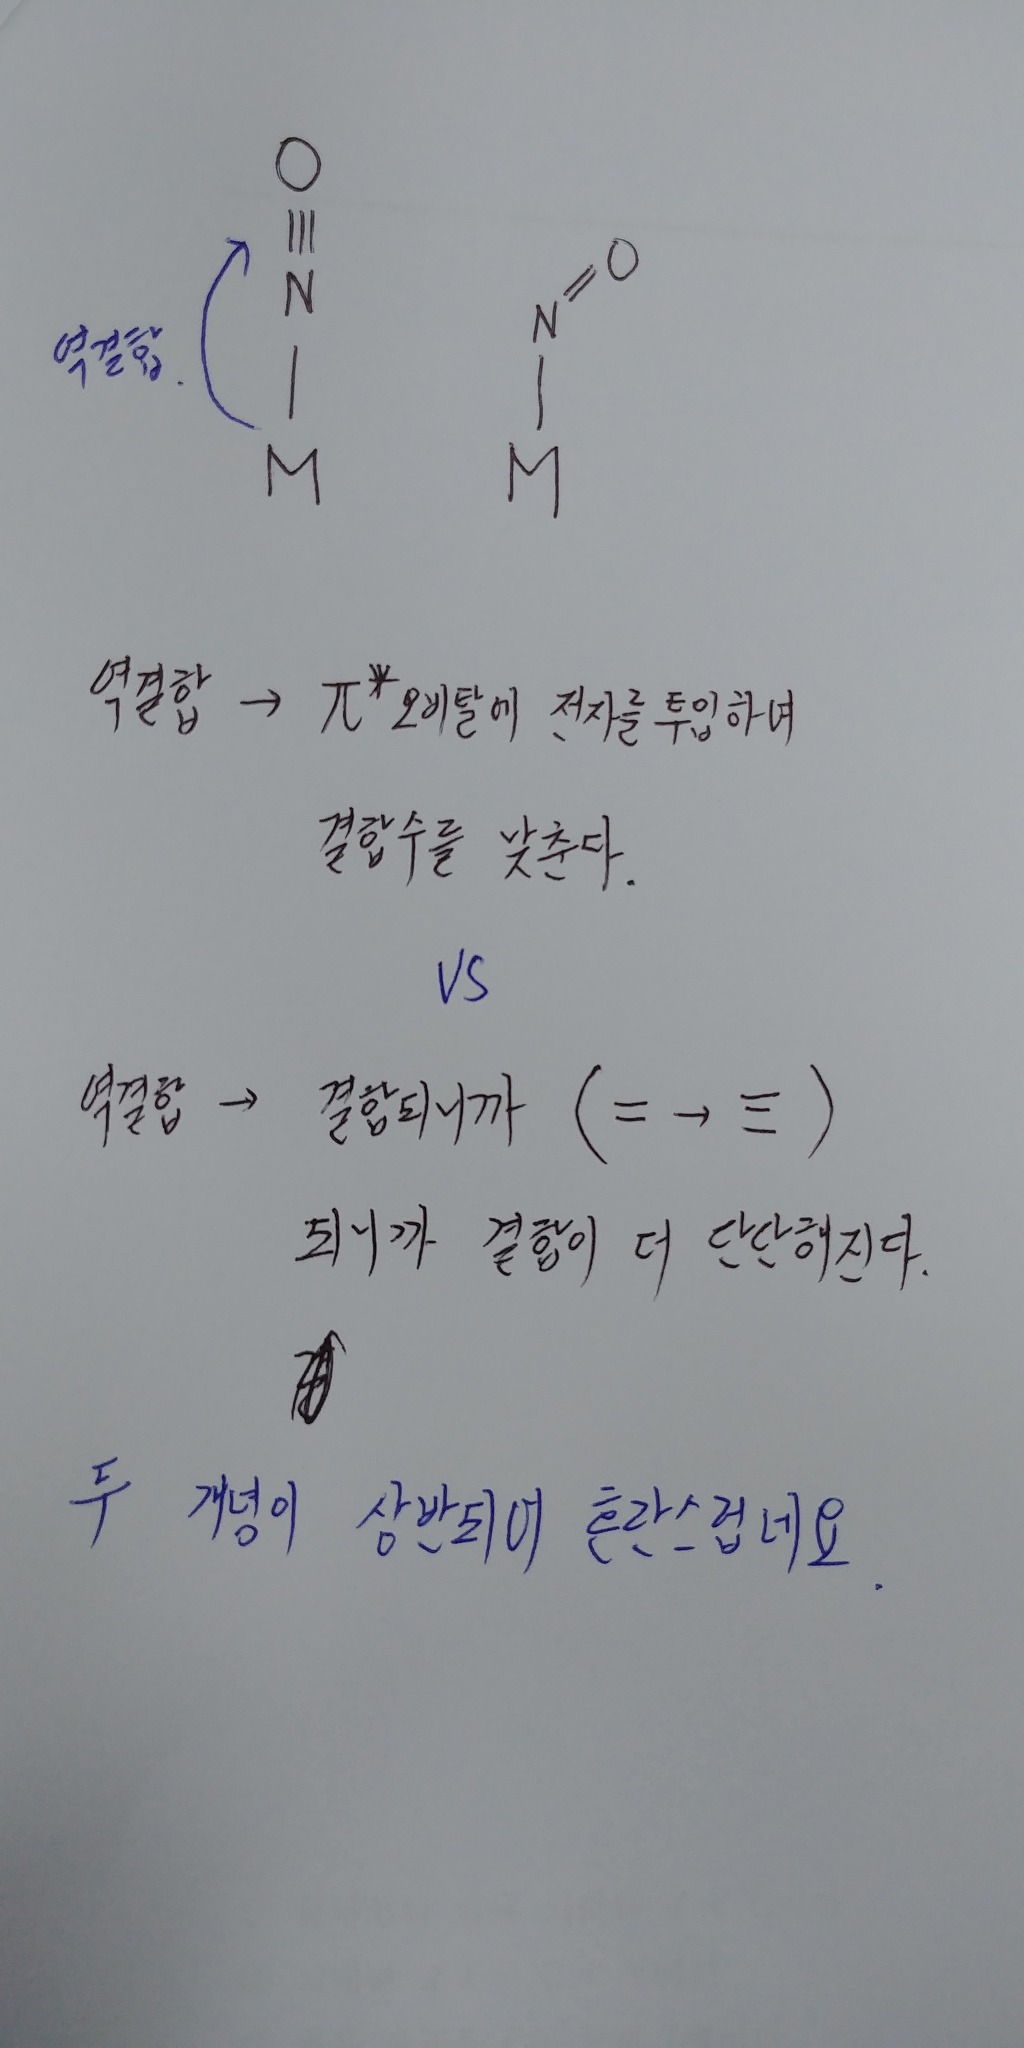 O
≡
N
M
역결합.
O
N
M
역결합 → π* 오비탈에 전자를 투입하녀
결합수를 낮춘다.
VS
역결합 → 결합되니까 (= → ≡)
되니까 결합이 더 단단해진다.
두 개념이 상반되어 혼란스럽네요.